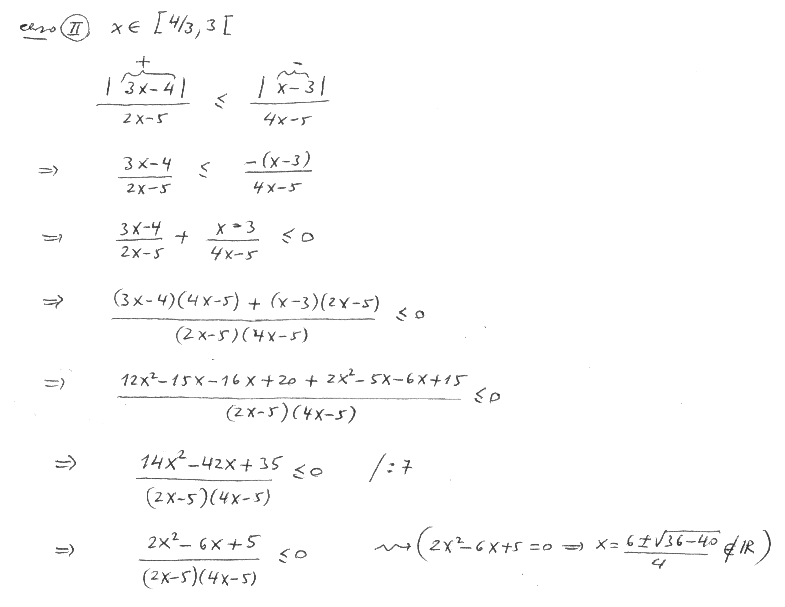 caso II x ∈ [4/3, 3[
+ -
|3x-4| / 2x-5 ≤ |x-3| / 4x-5
⇒ 3x-4 / 2x-5 ≤ -(x-3) / 4x-5
⇒ 3x-4 / 2x-5 + x-3 / 4x-5 ≤ 0
⇒ (3x-4)(4x-5) + (x-3)(2x-5) / (2x-5)(4x-5) ≤ 0
⇒ 12x²-15x-16x+20+2x²-5x-6x+15 / (2x-5)(4x-5) ≤ 0
⇒ 14x²-42x+35 / (2x-5)(4x-5) ≤ 0 /:7
⇒ 2x²-6x+5 / (2x-5)(4x-5) ≤ 0 ⇝ (2x²-6x+5=0 ⇒ x= 6±√36-40 / 4 ∉ ℝ)